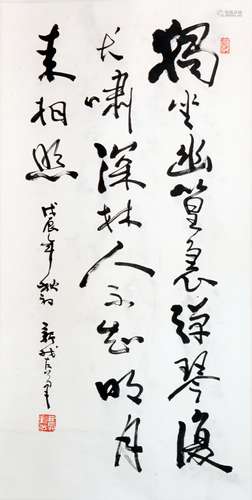 獨坐幽篁裏彈琴復
長嘯深林人不知明月
来相照
戊辰年秋初